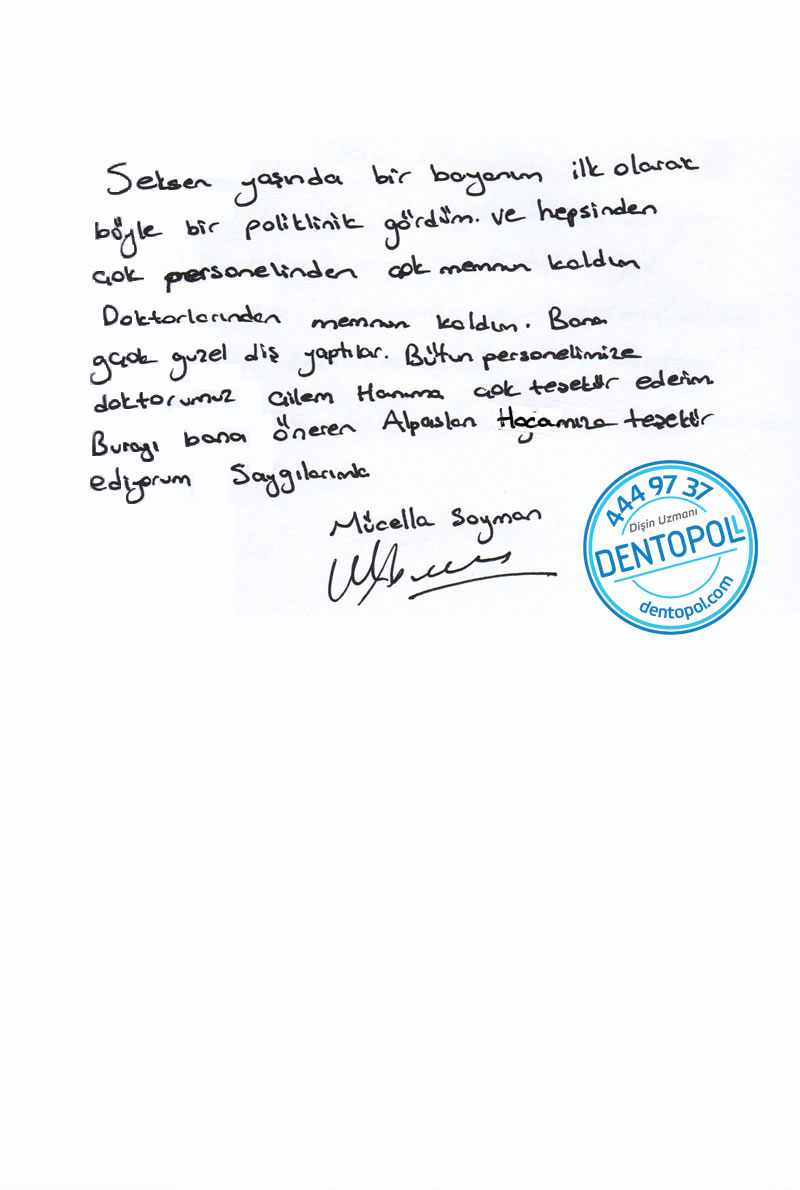 Seksen yaşında bir bayanım ilk olarak
böyle bir poliklinik gördüm. ve hepsinden
çok personelinden çok memnun kaldım
Doktorlarından memnun kaldım. Bana
çok guzel diş yaptılar. Bütun personelimize
doktorumuz Çilem Hanıma çok teşekür ederim
Burayı bana öneren Alpaslan Hocamıza teşekür
ediyorum Saygılarımla
Mücella Soyman
444 97 37
Dişin Uzmanı
DENTOPOLL
dentopol.com